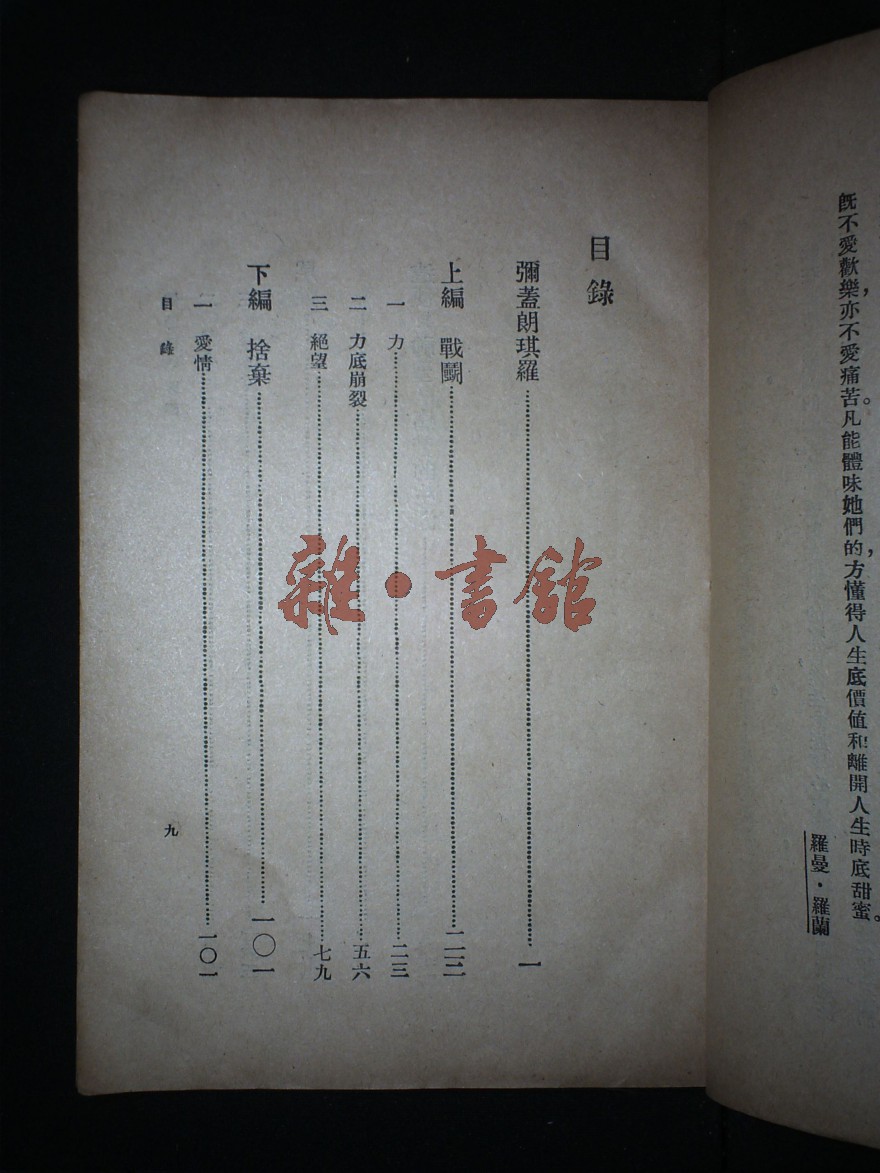 既不愛歡樂，亦不愛痛苦。凡能體味她們的，方懂得人生底價值和離開人生時底甜蜜。
羅曼・羅蘭
目錄
彌蓋朗琪羅……一
上編 戰鬪……
一 力……二三
二 力底崩裂……五六
三 絕望……七九
下編 捨棄……一〇一
一 愛情……一〇一
目錄
九
雜・書館